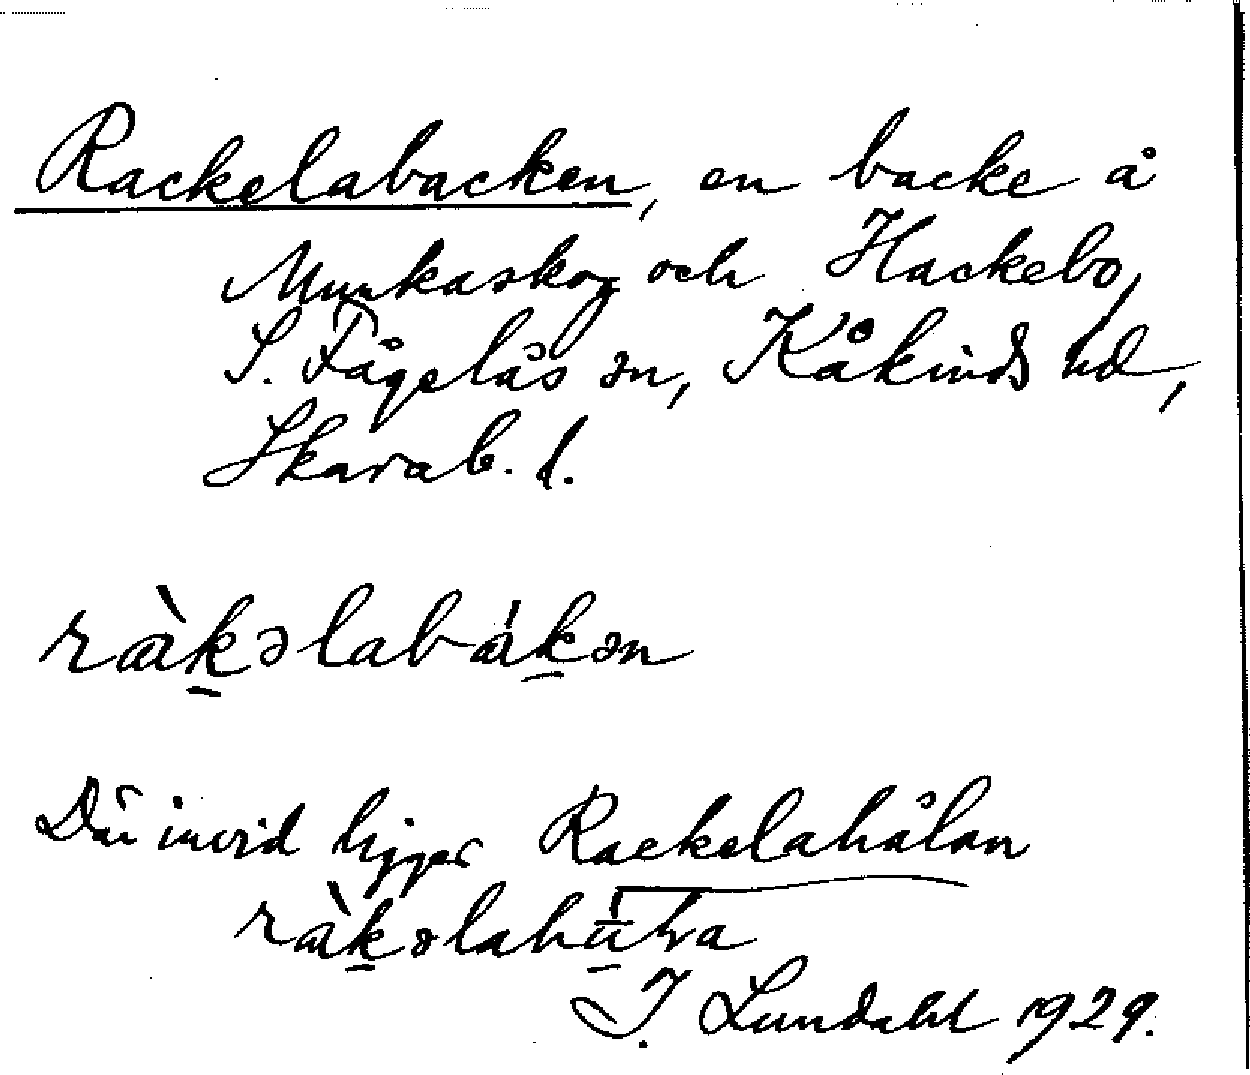 Rackelabacken, en backe å
Munkaskog och Hackebo,
S. Fågelås sn, Kåkinds hd,
Skarab. l.
ràkəlabákən
Där invid ligger Rackelahålan
I. Lundahl 1929.